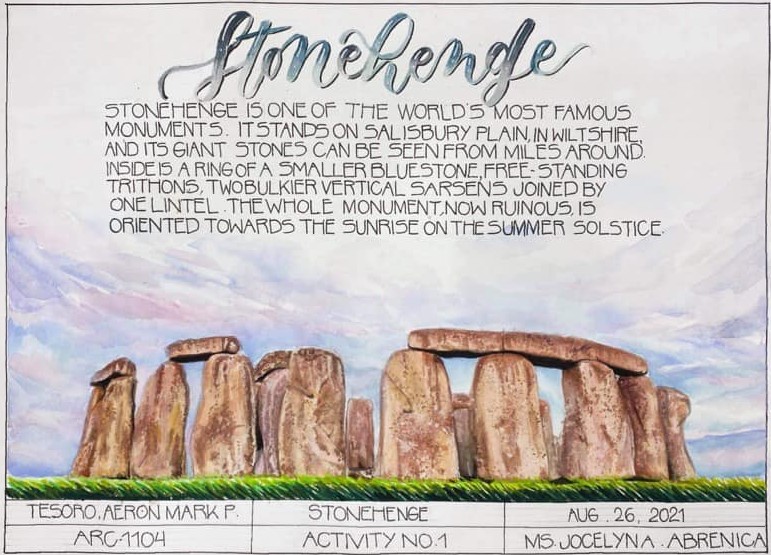 Stonehenge
STONEHENGE IS ONE OF THE WORLD'S MOST FAMOUS
MONUMENTS. IT STANDS ON SALISBURY PLAIN, IN WILTSHIRE,
AND ITS GIANT STONES CAN BE SEEN FROM MILES AROUND.
INSIDE IS A RING OF A SMALLER BLUESTONE, FREE-STANDING
TRITHONS, TWO BULKIER VERTICAL SARSENS JOINED BY
ONE LINTEL. THE WHOLE MONUMENT, NOW RUINOUS, IS
ORIENTED TOWARDS THE SUNRISE ON THE SUMMER SOLSTICE.
TESORO, AERON MARK P. STONEHENGE AUG. 26, 2021
ARC-1104 ACTIVITY NO.1 MS. JOCELYN A. ABRENICA